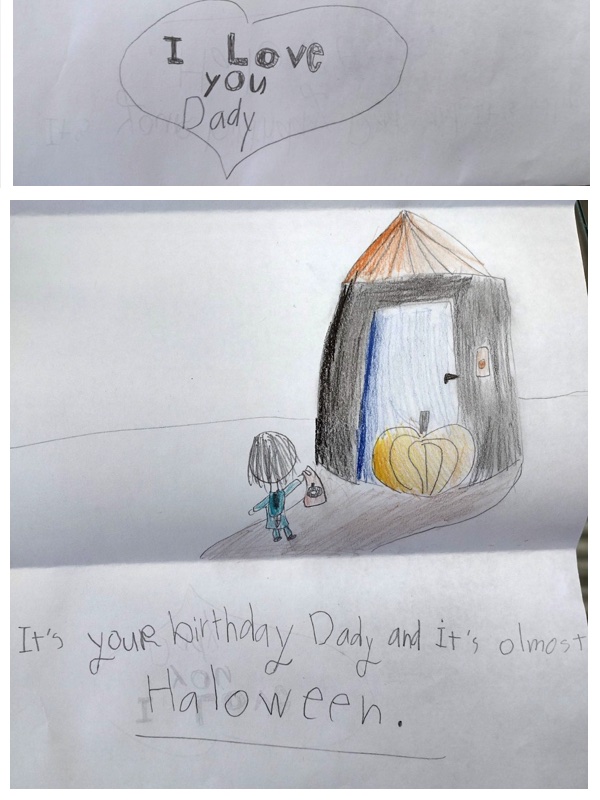 I Love
you
Dady
It's youR birthday Dady and it's olmost
Haloween.